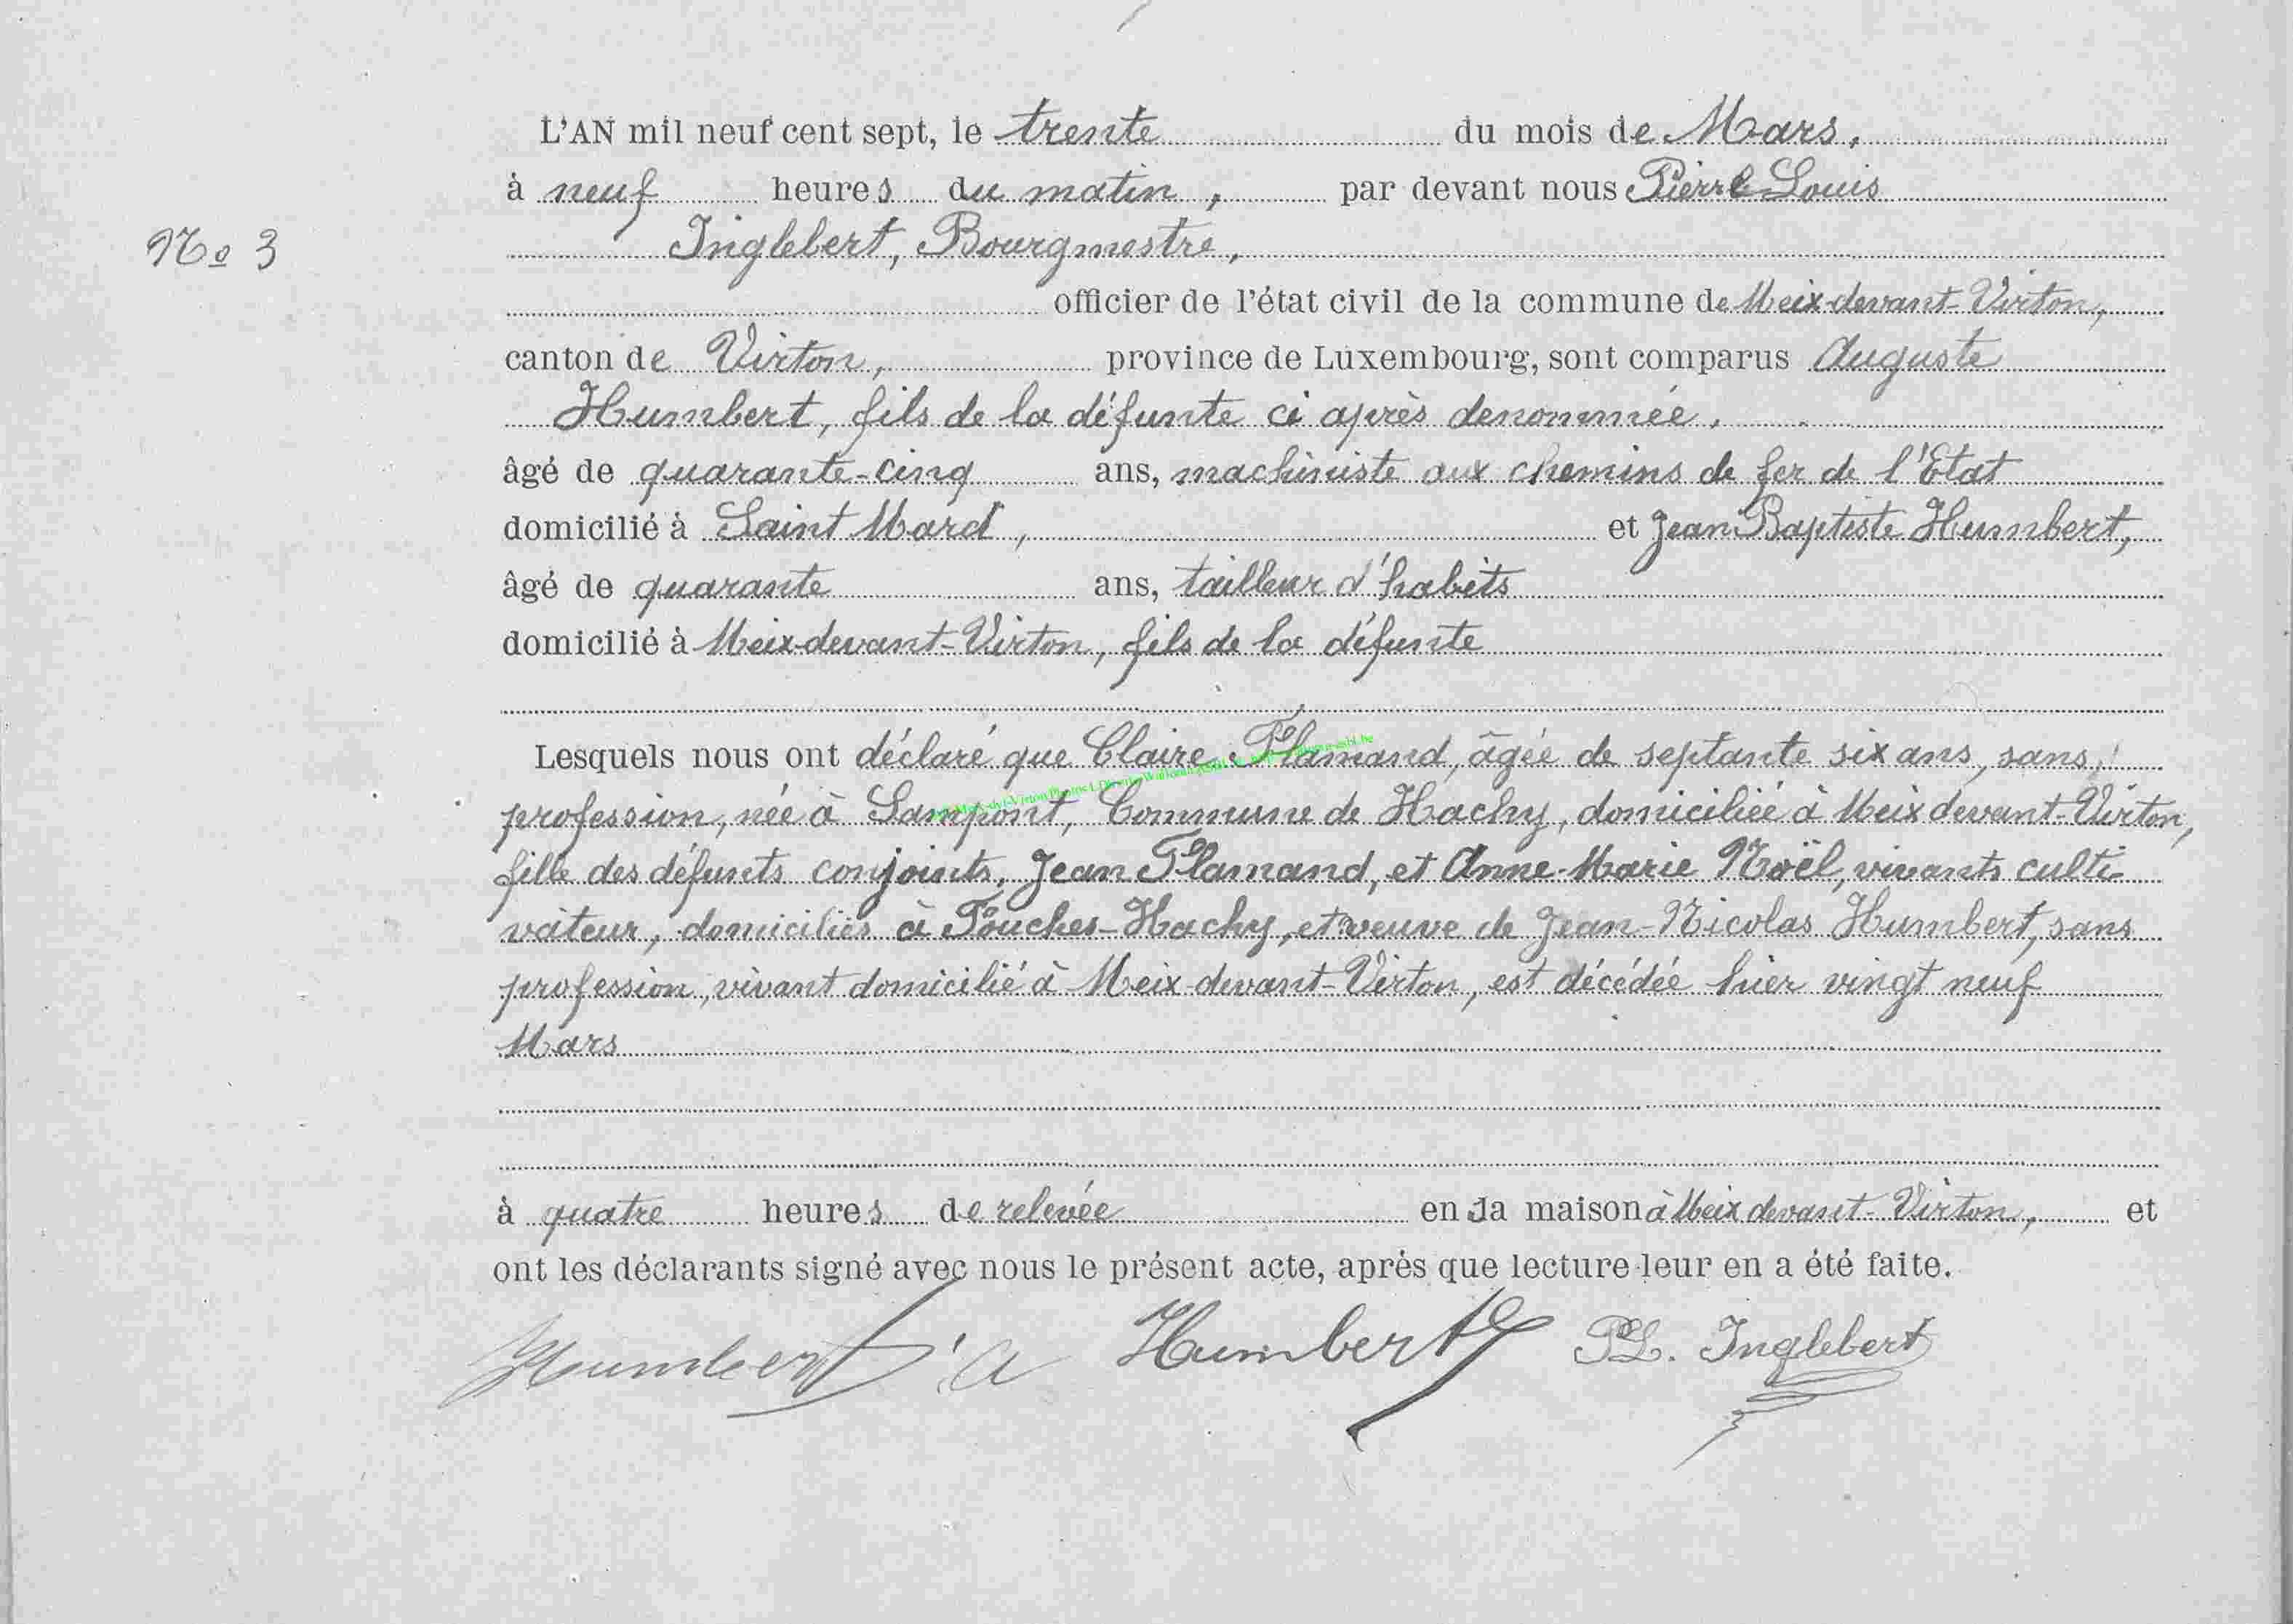 L'AN mil neuf cent sept, le trente du mois de Mars,
à neuf heures du matin, par devant nous Pierre Louis
No 3
Inglebert, Bourgmestre,
officier de l'état civil de la commune de Meix-devant-Virton,
canton de Virton, province de Luxembourg, sont comparus Auguste
Humbert, fils de la défunte ci après denommée,
âgé de quarante-cinq ans, machiniste aux chemins de fer de l'Etat
domicilié à Saint Mard, et Jean Baptiste Humbert,
âgé de quarante ans, tailleur d'habits
domicilié à Meix-devant-Virton, fils de la défunte
Lesquels nous ont déclaré que Claire Flamand, âgée de septante six ans, sans
profession, née à Sampont, Commune de Hachy, domiciliée à Meix devant-Virton,
fille des défunts conjoints, Jean Flamand, et Anne-Marie Noël, vivants culti-
vateur, domiciliés à Fouches-Hachy, et veuve de Jean-Nicolas Humbert, sans
profession, vivant domicilié à Meix-devant-Virton, est décédée hier vingt neuf
Mars
à quatre heures de relevée en sa maison à Meix devant-Virton, et
ont les déclarants signé avec nous le présent acte, après que lecture leur en a été faite.
Humbert A Humbert PL. Inglebert